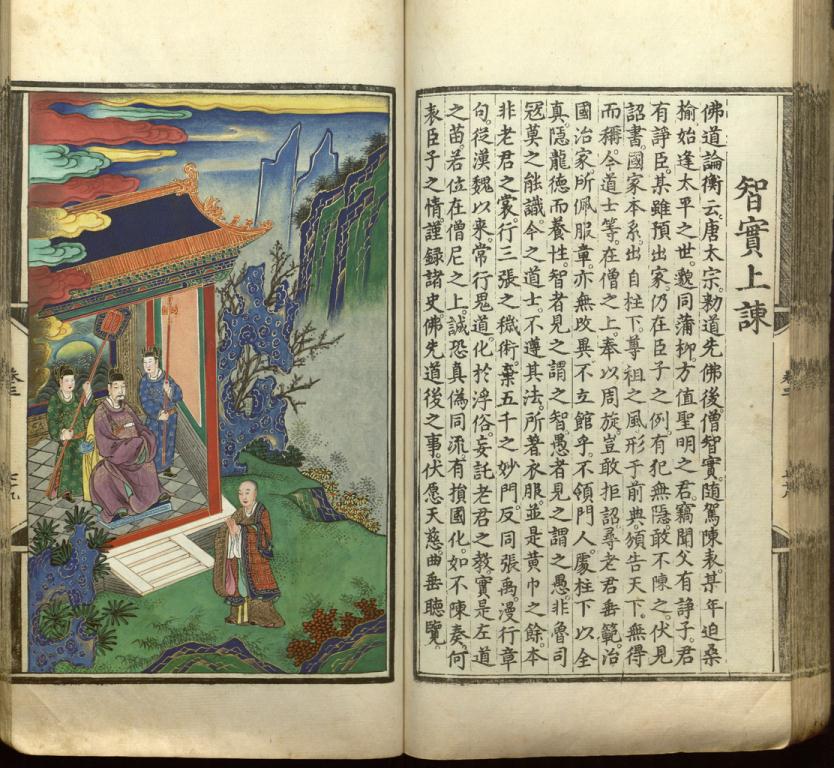 智實上諫
佛道論衡云。唐太宗。勑道先佛後。僧智實。隨駕陳表。某年迫桑
榆始逢太平之世。䫉同蒲柳。方值聖明之君。竊聞父有諍子。君
有諍臣。某雖預出家。仍在臣子之例。有犯無隱。敢不陳之。伏見
詔書。國家本系。出自柱下。尊祖之風。形于前典。頒告天下。無得
而稱。令道士等。在僧之上。奉以周旋。豈敢拒詔。尋老君垂範。治
國治家。所佩服章。亦無改異。不立館宇。不領門人。處柱下以全
真。隱龍德而養性。智者見之謂之智。愚者見之謂之愚。非魯司
冦莫之能識。今之道士。不遵其法。所著衣服。並是黃巾之餘。本
非老君之裔。行三張之穢術。棄五千之妙門。反同張禹。漫行章
句。從漢魏以來。常行鬼道。化於浮俗。妄託老君之教。實是左道
之苗。若位在僧尼之上。誠恐真偽同流。有損國化。如不陳奏。何
表臣子之情。謹録諸史。佛先道後之事。伏愿天慈。曲垂聽覽。
卷三